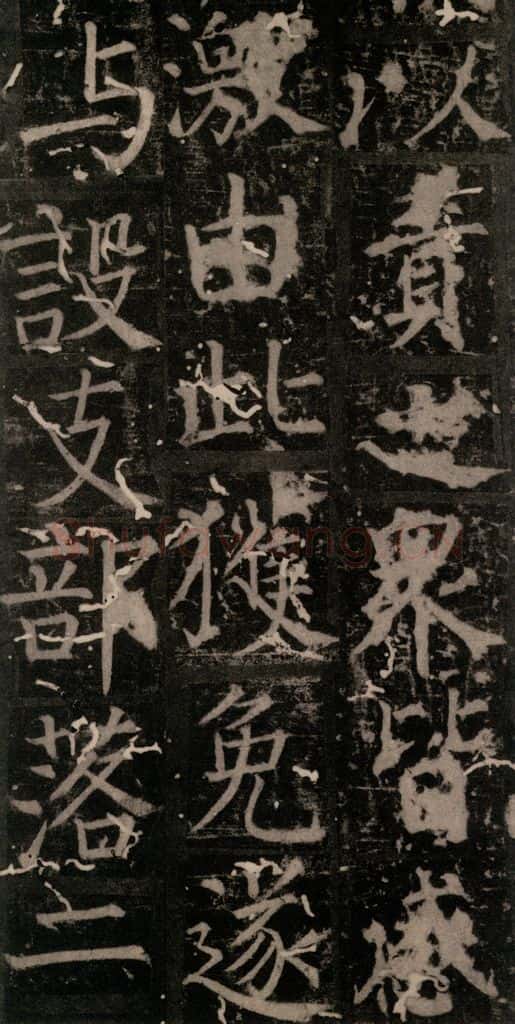 以責世界皆感
激由此獲免遂
与設支部落二
shufawang.cn